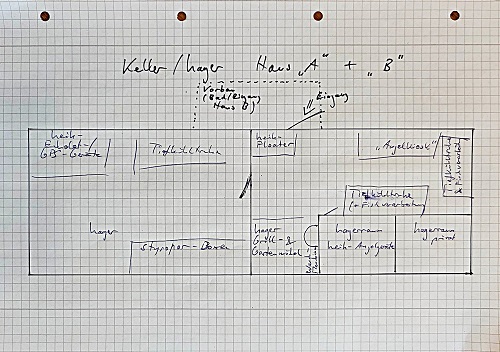 Keller/Lager Haus „A" + „B"
Vorbau
(Bad/Eingang
Haus B)
Eingang
Leih-
GB-Geräte
Tiefkühltruhe
Leih-
Ploater
„Angelkiosk"
Tiefkühltruhe
Tiefkühltruhe
Lager
Styropor-Boxen
Lager
Grill- &
Gartenmöbel
Lagerraum
Leih-Angelgeräte
Lagerraum
privat